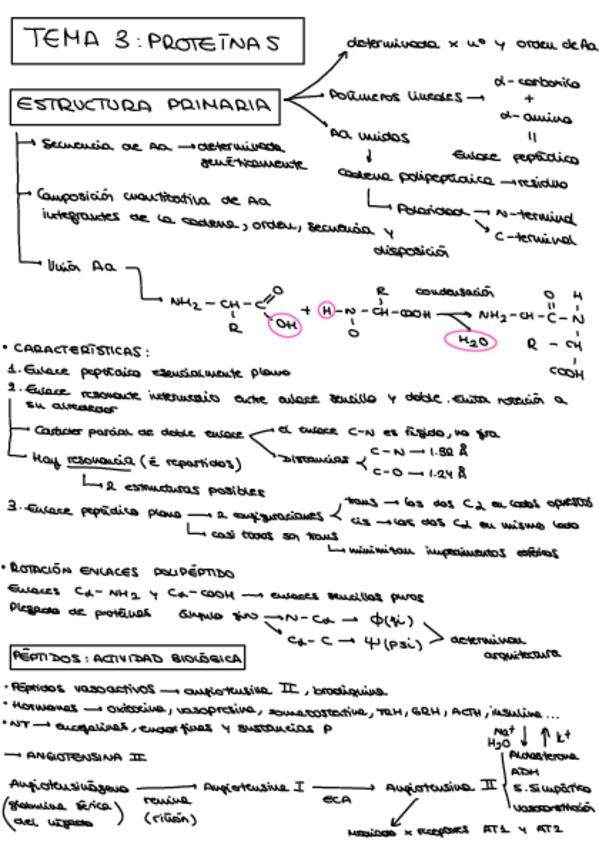 TEMA 3: PROTEÍNAS
determinada x nº y orden de Aa
ESTRUCTURA PRIMARIA
Polímeros lineales → α-carboxilo
+
α-amino
=
Enlace peptídico
Aa unidos
cadena polipeptídica → residuo
Polaridad → N-terminal
C-terminal
Secuencia de Aa → determinada
genéticamente
Composición cuantitativa de Aa
integrantes de la cadena, orden, secuencia y
disposición
Unión Aa
NH2 - CH - C O OH + H - N - CH - COOH condensación → NH2 - CH - C - N
R O R H2O O H
R - CH
COOH
• CARACTERÍSTICAS:
1. Enlace peptídico esencialmente plano
2. Enlace resonante intermedio entre enlace sencillo y doble. Evita rotación a
su alrededor
Carácter parcial de doble enlace
el enlace C-N es rígido, no gira
Distancias C-N → 1.32 Å
C-O → 1.24 Å
Hay resonancia (é repartidos)
2 estructuras posibles
3. Enlace peptídico plano → 2 configuraciones
trans → los dos Cα en lados opuestos
cis → los dos Cα en mismo lado
casi todos son trans
minimizan impedimentos estéricos
• ROTACIÓN ENLACES POLIPÉPTIDO
Enlaces Cα-NH2 y Cα-COOH → enlaces sencillos puros
Plegado de proteínas ángulo giro → N-Cα → Φ(fi)
Cα-C → Ψ(psi)
determinan
arquitectura
PÉPTIDOS: ACTIVIDAD BIOLÓGICA
• Péptidos vasoactivos → angiotensina II, bradiquina
• Hormonas → oxitocina, vasopresina, somatostatina, TRH, GRH, ACTH, insulina...
• NT → encefalinas, endorfinas y sustancias P
→ ANGIOTENSINA II
Na+
H2O ↓ ↑ K+
Aldosterona
ADH
S. Simpático
Vasoconstricción
Angiotensinógeno → Angiotensina I → Angiotensina II
(globulina sérica
del hígado)
renina
(riñón)
ECA
Mediada x receptores AT1 y AT2